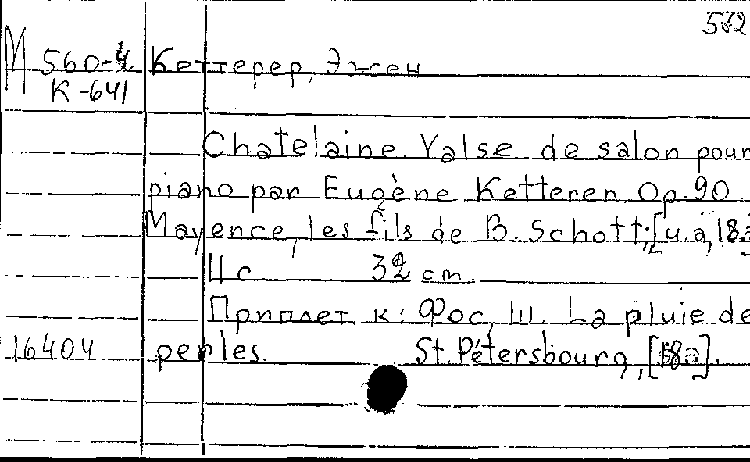 572
М 560-4 Кеттерер, Эжен
К-641
Chatelaine. Valse de salon pour
piano par Eugène Ketteren Op. 90
Mayence, les fils de B. Schott; [u.a, 18
11 с 32 cm.
Приплет. к: Фос, Ш. La pluie de
16404 perles. St. Pétersbourg, [18